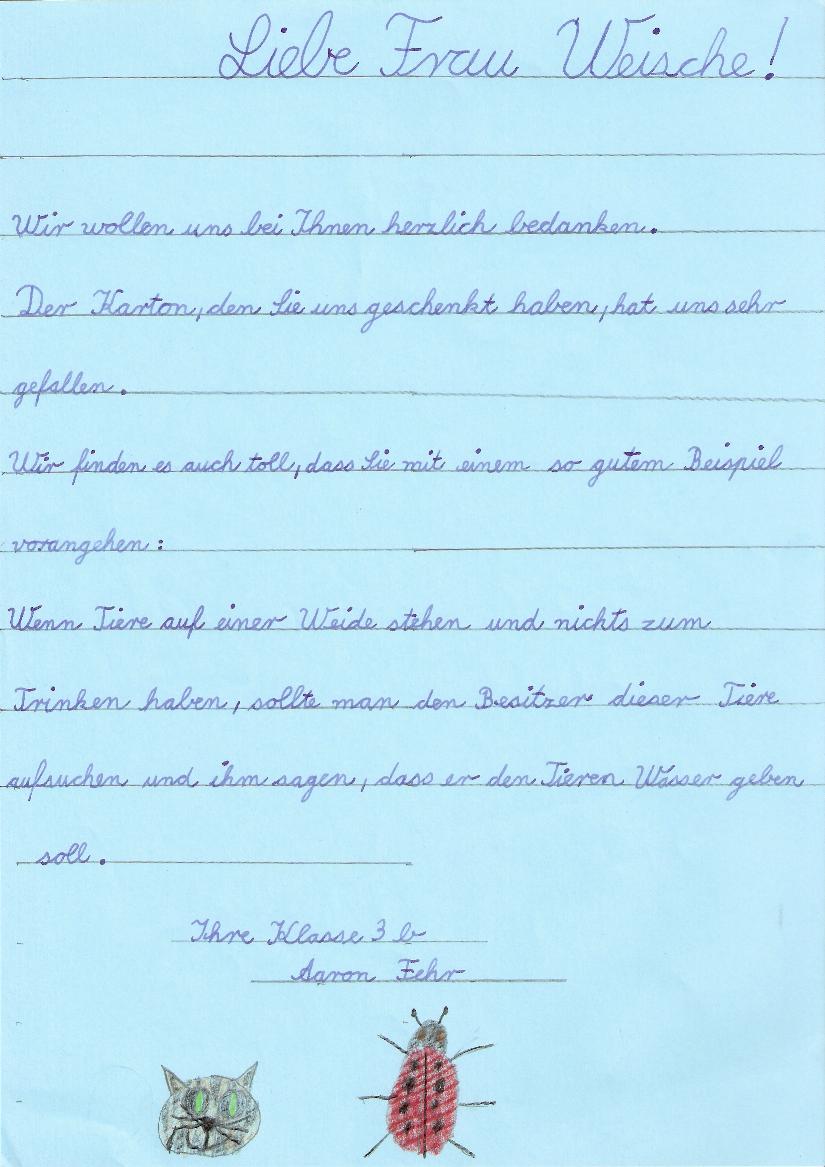 Liebe Frau Weische!
Wir wollen uns bei Ihnen herzlich bedanken.
Der Karton, den Sie uns geschenkt haben, hat uns sehr
gefallen.
Wir finden es auch toll, dass Sie mit einem so gutem Beispiel
vorangehen:
Wenn Tiere auf einer Weide stehen und nichts zum
Trinken haben, sollte man den Besitzer dieser Tiere
aufsuchen und ihm sagen, dass er den Tieren Wasser geben
soll.
Ihre Klasse 3 b
Aaron Fehr